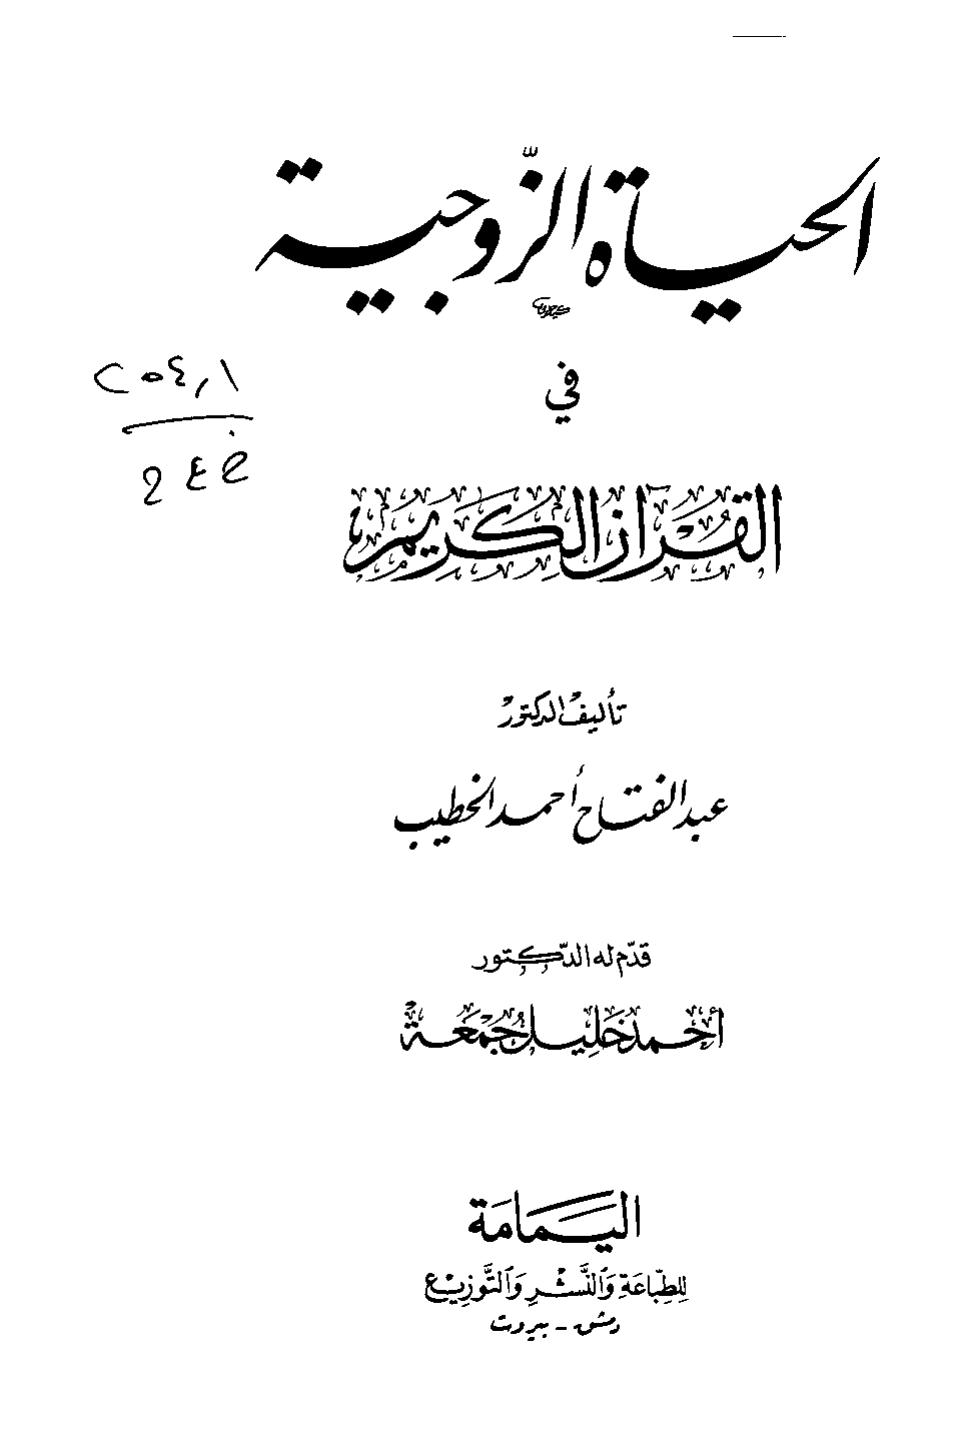 الحياة الزّوجية
في
القرآن الكريم
تأليف الدكتور
عبد الفتاح أحمد الخطيب
قدّم له الدّكتور
أحمد خليل جمعة
اليمامة
للطباعة والنشر والتوزيع
دمشق - بيروت